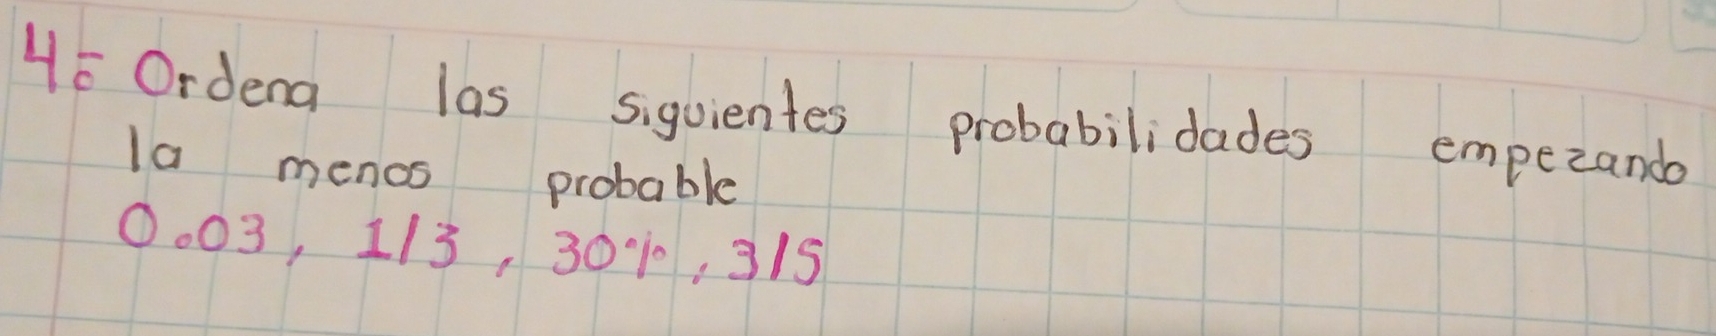 4º Ordena las siguientes probabilidades empezando
la menos probable
0.03, 1/3, 30%, 3/5